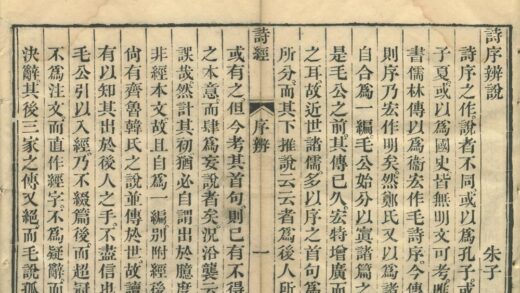 詩序辨說
朱子
詩序之作說者不同或以爲孔子或
子夏或以爲國史皆無明文可考唯
書儒林傳以爲衞宏作毛詩序今傳
則序乃宏作明矣然鄭氏又以爲諸
自合爲一編毛公始分以寘諸篇之
是毛公之前其傳已久宏特增廣而
之耳故近世諸儒多以序之首句爲
所分而其下推說云云者爲後人所
詩經
序辨
一
或有之但今考其首句則已有不得
之本意而肆爲妄說者矣況沿襲云
誤哉然計其初猶必自謂出於臆度
非經本文故且自爲一編別附經後
尙有齊魯韓氏之說並傳於世故讀
有以知其出於後人之手不盡信也
毛公引以入經乃不綴篇後而超冠
不爲注文而直作經字不爲疑辭而
決辭其後三家之傳又絕而毛說孤